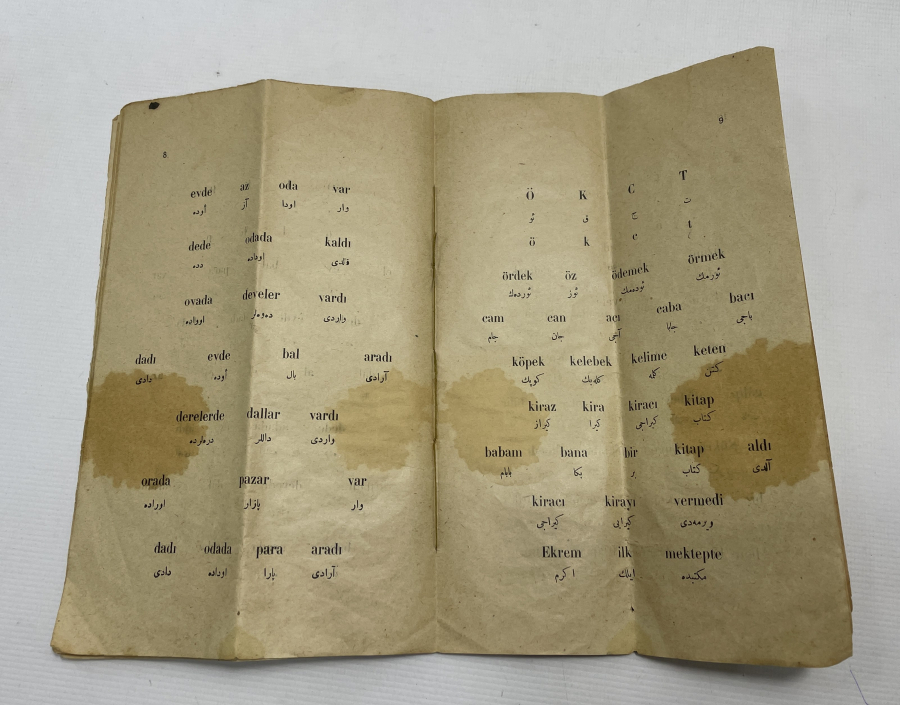 8
evde az oda var
أوده آز اودا وار
dede odada kaldı
دده اوداده قالدى
ovada develer vardı
اوواده ده‌وه‌لر واردى
dadı evde bal aradı
دادى أوده بال آرادى
derelerde dallar vardı
دره‌لرده داللر واردى
orada pazar var
اوراده پازار وار
dadı odada para aradı
دادى اوداده پارا آرادى
9
Ö K C T
ئو ق ج ت
ö k c t
ördek öz ödemek örmek
ئورده‌ك ئوز ئوده‌مك ئورمك
cam can acı caba bacı
جام جان آجى جابا باجى
köpek kelebek kelime keten
كوپك كله‌بك كلمه كتن
kiraz kira kiracı kitap
كيراز كيرا كيراجى كتاب
babam bana bir kitap aldı
بابام بكا بر كتاب آلدى
kiracı kirayı vermedi
كيراجى كيرايى ويرمه‌دى
Ekrem ilk mektepte
اكرم ايلك مكتبده